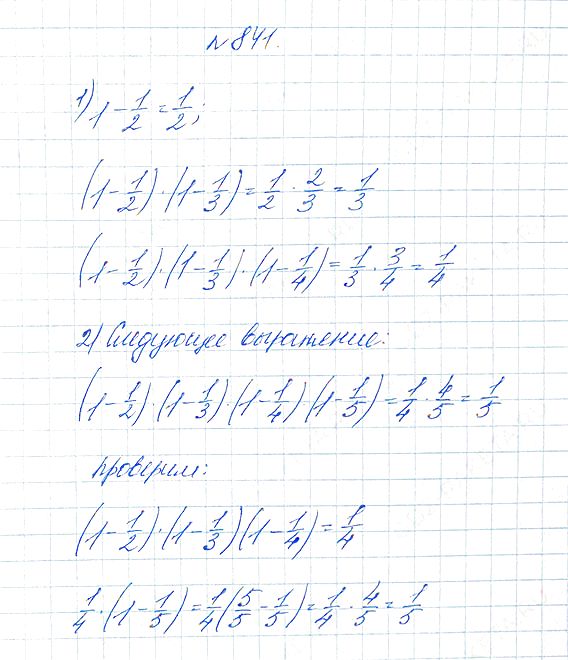 №841.
1) 1 - 1/2 = 1/2;
(1 - 1/2) · (1 - 1/3) = 1/2 · 2/3 = 1/3
(1 - 1/2) · (1 - 1/3) · (1 - 1/4) = 1/3 · 3/4 = 1/4
2) Следующее выражение:
(1 - 1/2) · (1 - 1/3) · (1 - 1/4) (1 - 1/5) = 1/4 · 4/5 = 1/5
проверим:
(1 - 1/2) · (1 - 1/3) (1 - 1/4) = 1/4
1/4 · (1 - 1/5) = 1/4 (5/5 - 1/5) = 1/4 · 4/5 = 1/5